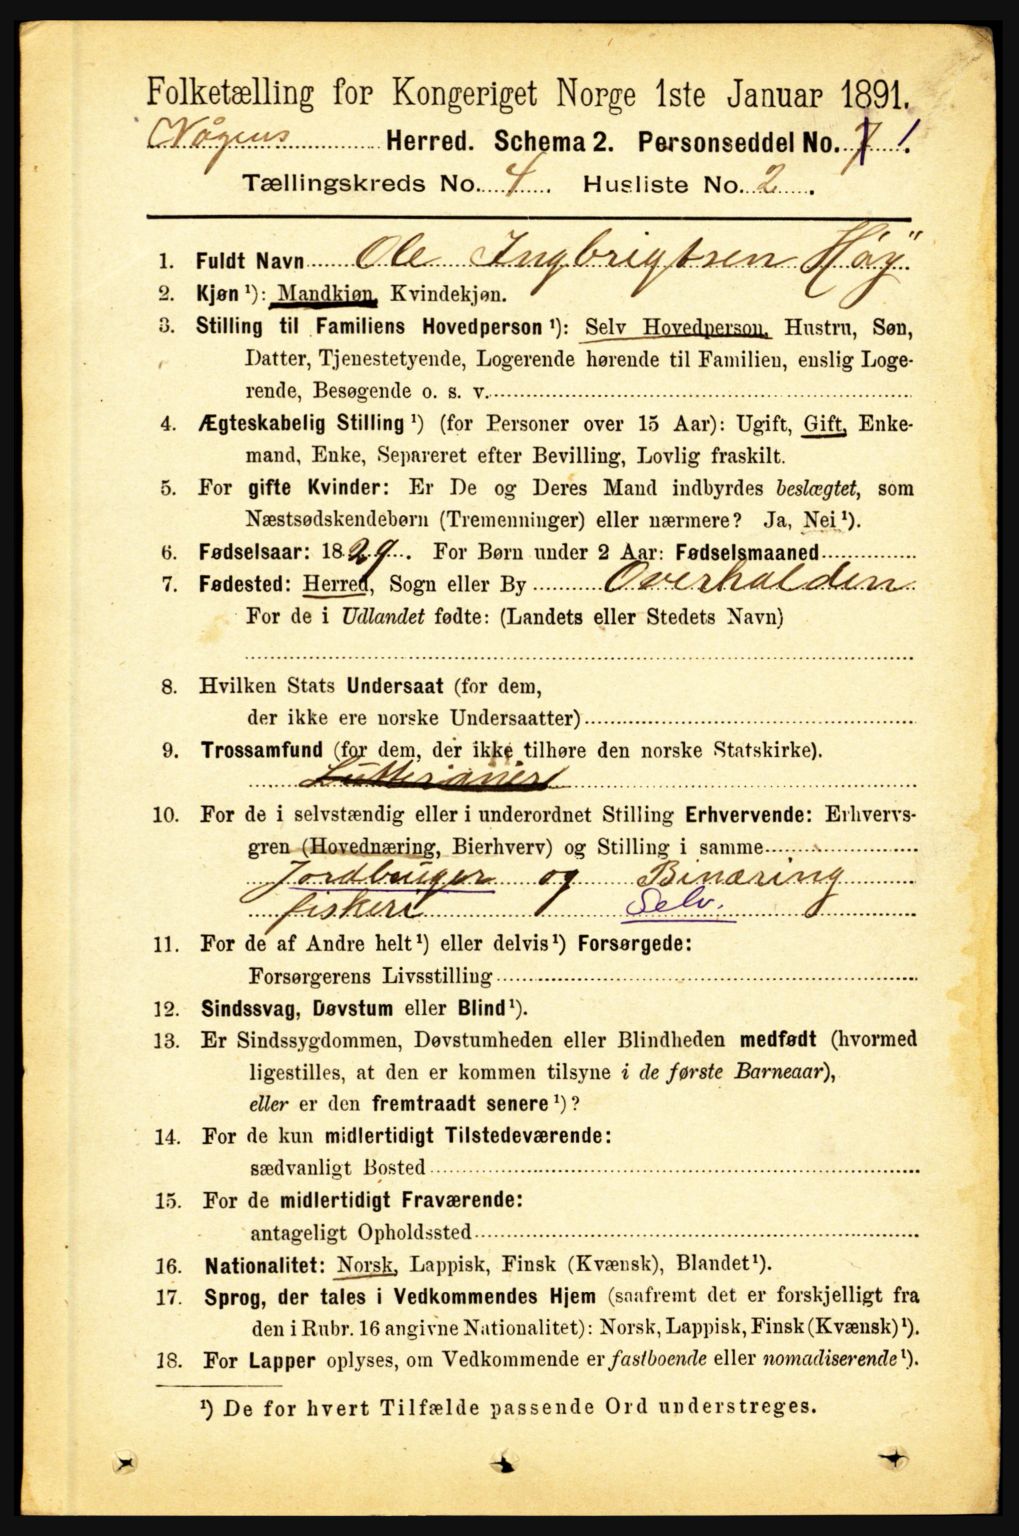 Folketælling for Kongeriget Norge 1ste Januar 1891.
Herred. Schema 2. Personseddel No. 1.
Tællingskreds No. 4. Husliste No. 2.
1. Fuldt Navn Ole Ingbrigtsen Høy
2. Kjøn ¹): Mandkjøn, Kvindekjøn.
3. Stilling til Familiens Hovedperson ¹): Selv Hovedperson, Hustru, Søn,
Datter, Tjenestetyende, Logerende hørende til Familien, enslig Loge-
rende, Besøgende o. s. v.
4. Ægteskabelig Stilling ¹) (for Personer over 15 Aar): Ugift, Gift, Enke-
mand, Enke, Separeret efter Bevilling, Lovlig fraskilt.
5. For gifte Kvinder: Er De og Deres Mand indbyrdes beslægtet, som
Næstsødskendebørn (Tremenninger) eller nærmere? Ja, Nei ¹).
6. Fødselsaar: 1829. For Børn under 2 Aar: Fødselsmaaned
7. Fødested: Herred, Sogn eller By Overhalden
For de i Udlandet fødte: (Landets eller Stedets Navn)
8. Hvilken Stats Undersaat (for dem,
der ikke ere norske Undersaatter)
9. Trossamfund (for dem, der ikke tilhøre den norske Statskirke).
10. For de i selvstændig eller i underordnet Stilling Erhvervende: Erhvervs-
gren (Hovednæring, Bierhverv) og Stilling i samme
Jordbruger og Binæring
fiskeri Selv.
11. For de af Andre helt ¹) eller delvis ¹) Forsørgede:
Forsørgerens Livsstilling
12. Sindssvag, Døvstum eller Blind ¹).
13. Er Sindssygdommen, Døvstumheden eller Blindheden medfødt (hvormed
ligestilles, at den er kommen tilsyne i de første Barneaar),
eller er den fremtraadt senere ¹)?
14. For de kun midlertidigt Tilstedeværende:
sædvanligt Bosted
15. For de midlertidigt Fraværende:
antageligt Opholdssted
16. Nationalitet: Norsk, Lappisk, Finsk (Kvænsk), Blandet ¹).
17. Sprog, der tales i Vedkommendes Hjem (saafremt det er forskjelligt fra
den i Rubr. 16 angivne Nationalitet): Norsk, Lappisk, Finsk (Kvænsk) ¹).
18. For Lapper oplyses, om Vedkommende er fastboende eller nomadiserende ¹).
¹) De for hvert Tilfælde passende Ord understreges.